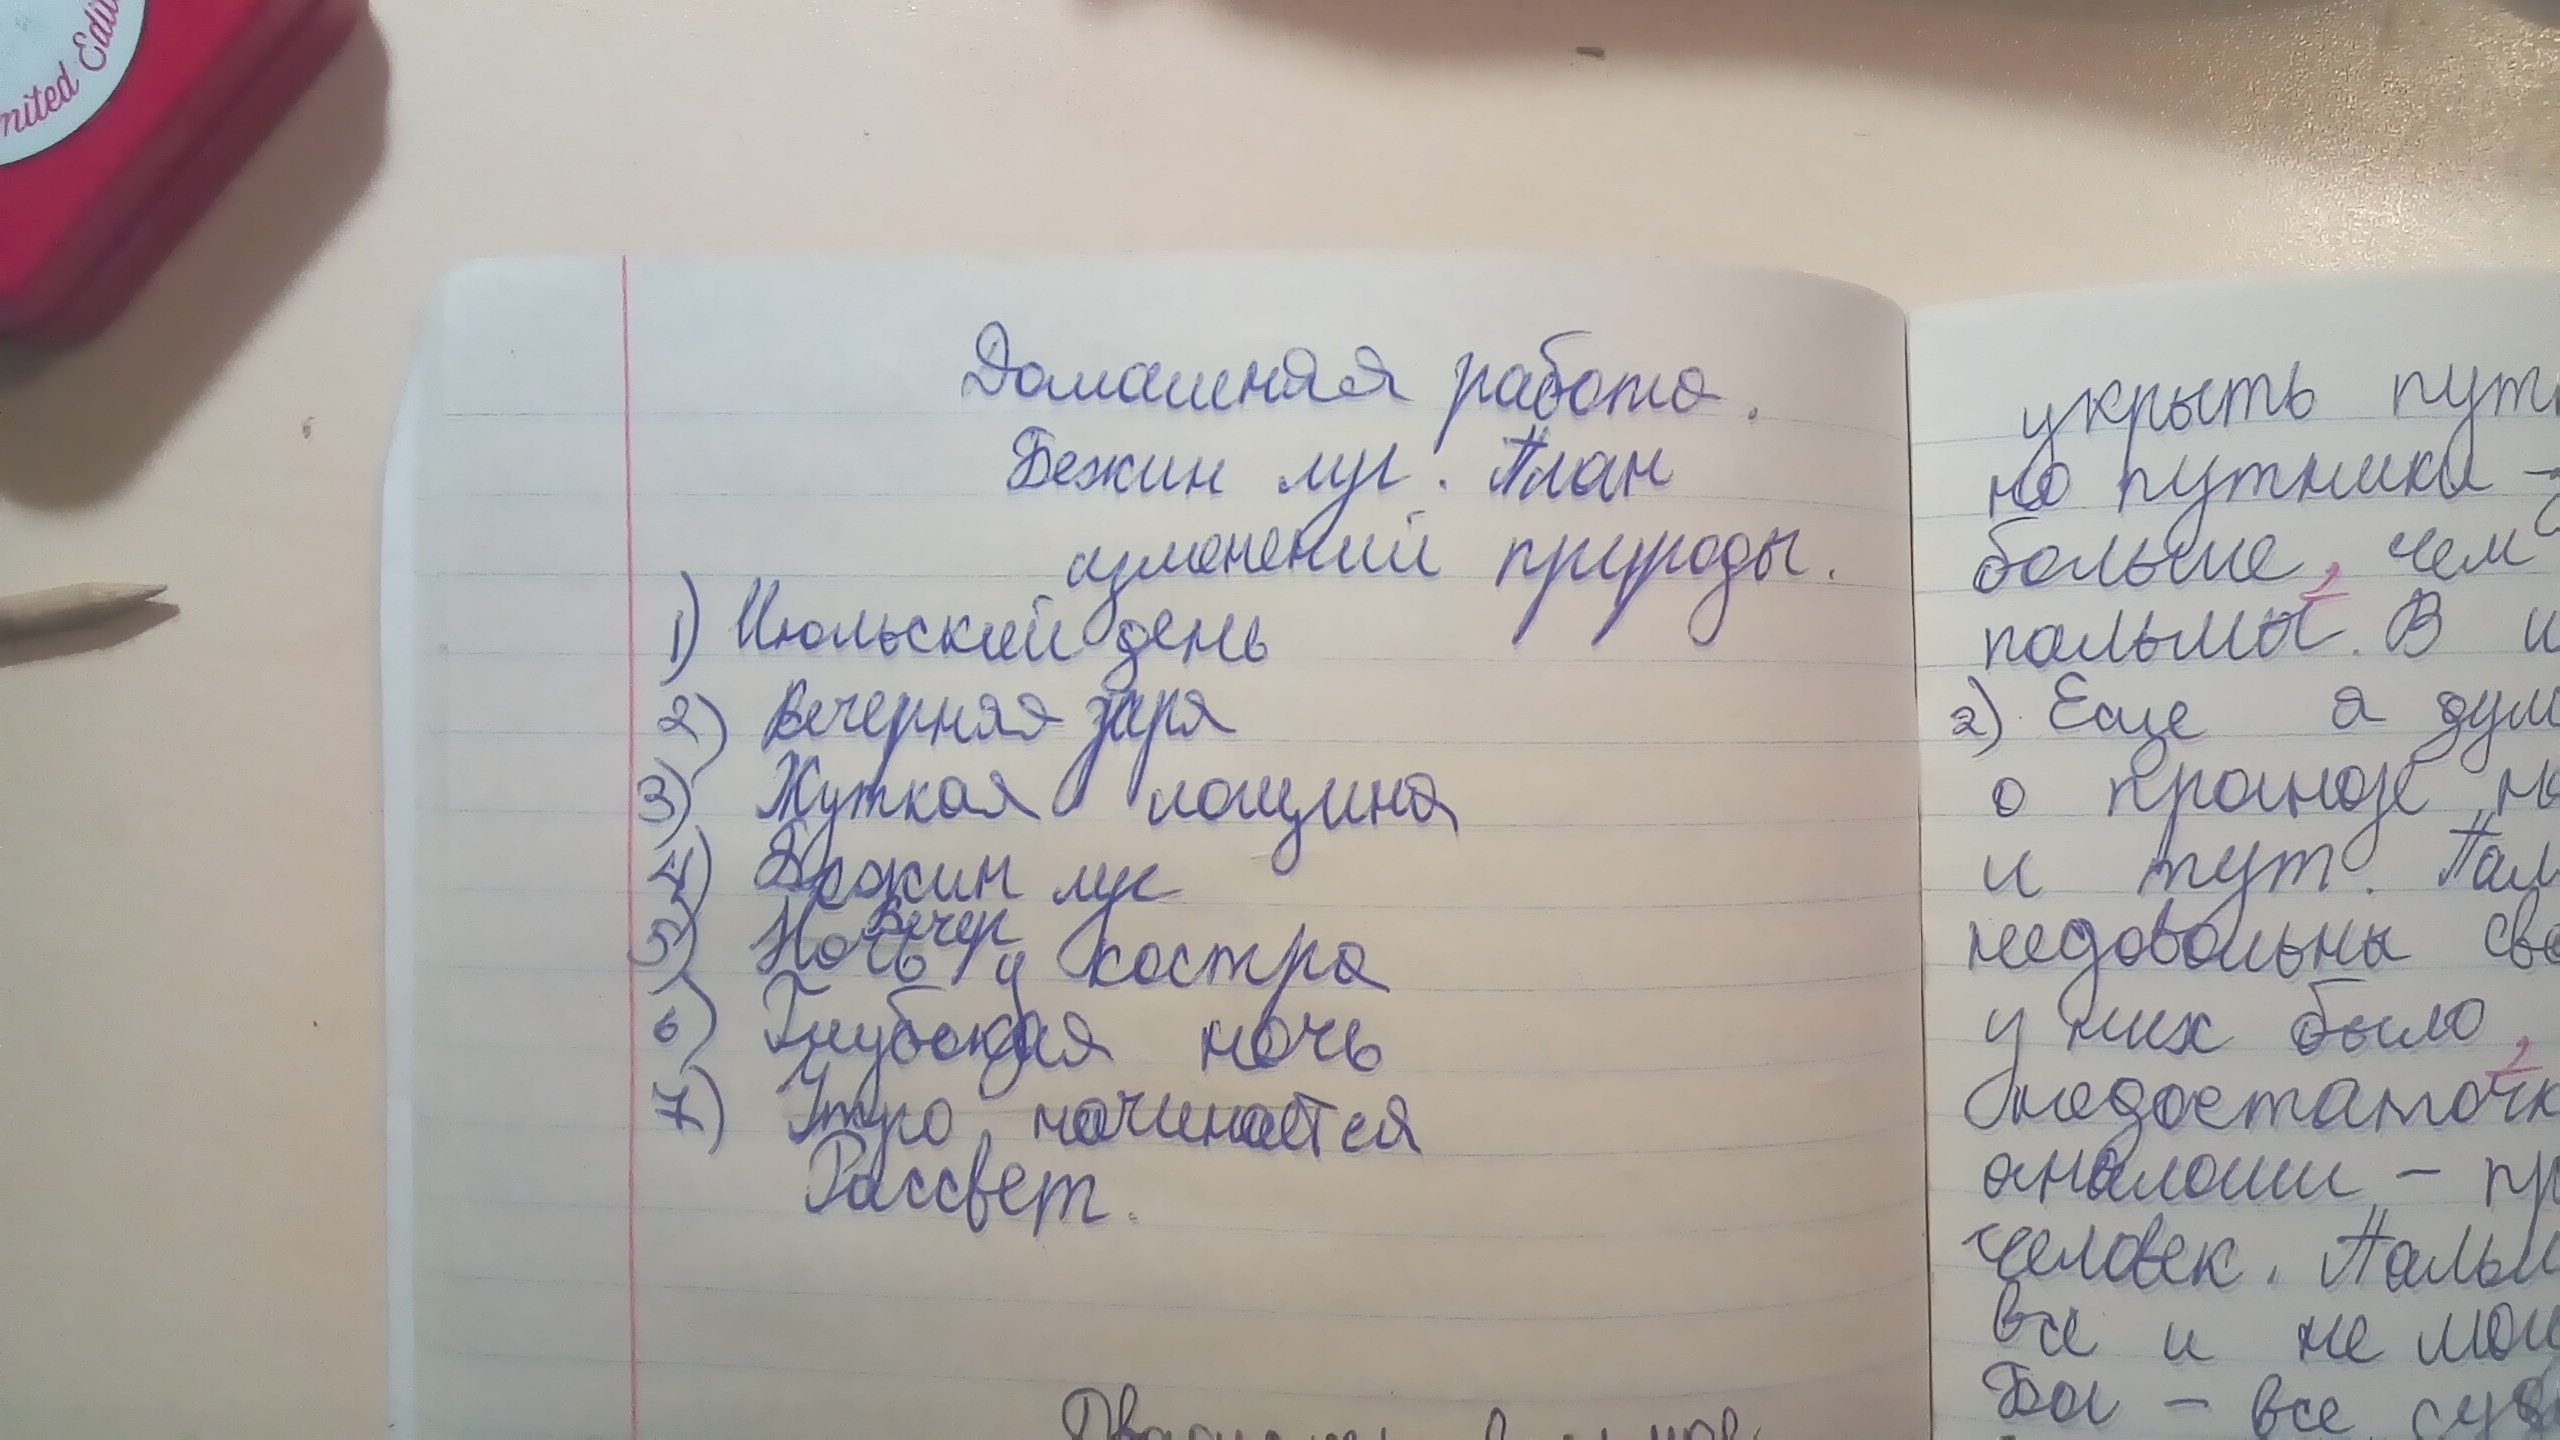 mited Edit
Домашняя работа.
Бежин луг. План
изменений природы.
1) Июльский день
2) Вечерняя заря
3) Жуткая лощина
4) Бежин луг
Вечер
5) Ночь у костра
6) Глубокая ночь
7) Утро начинается
Рассвет.
укрыть
но путника -
больше, чем
пальмы. В
2) Еще я дум
о
и тут. Пал
недовольны сво
у них было,
недостаточн
аналоги - пр
человек. Паль
все и не мог
Бог - все